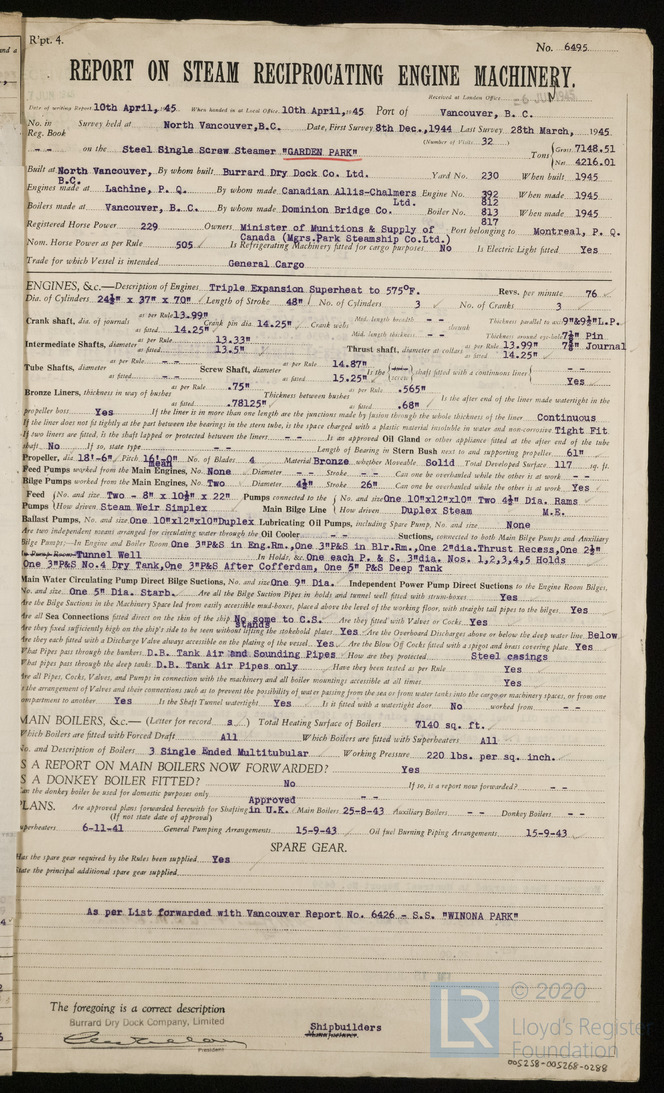 R'pt. 4.
No. 6495
REPORT ON STEAM RECIPROCATING ENGINE MACHINERY.
Received at London Office 6 JUN 1945
Date of writing Report 10th April, 45. When handed in at Local Office 10th April, 45 Port of Vancouver, B. C.
No. in Reg. Book Survey held at North Vancouver, B.C. Date, First Survey 8th Dec., 1944 Last Survey 28th March, 1945
(Number of Visits 32)
- - on the Steel Single Screw Steamer "GARDEN PARK" Tons Gross 7148.51 Net 4216.01
Built at North Vancouver, B.C. By whom built Burrard Dry Dock Co. Ltd. Yard No. 230 When built 1945
Engines made at Lachine, P. Q. By whom made Canadian Allis-Chalmers Ltd. Engine No. 392 When made 1945
Boilers made at Vancouver, B. C. By whom made Dominion Bridge Co. Boiler No. 812 813 817 When made 1945
Registered Horse Power 229 Owners Minister of Munitions & Supply of Canada (Mgrs. Park Steamship Co. Ltd.) Port belonging to Montreal, P. Q.
Nom. Horse Power as per Rule 505 Is Refrigerating Machinery fitted for cargo purposes No Is Electric Light fitted Yes
Trade for which Vessel is intended General Cargo
ENGINES, &c.—Description of Engines Triple Expansion Superheat to 575°F. Revs. per minute 76
Dia. of Cylinders 24½" x 37" x 70" Length of Stroke 48" No. of Cylinders 3 No. of Cranks 3
Crank shaft, dia. of journals as per Rule 13.99" as fitted 14.25" Crank pin dia. 14.25" Crank webs Mid. length breadth - - Mid. length thickness - - shrunk Thickness parallel to axis 9"&9½"L.P. Thickness around eye-hole 7½" Pin 7⅞" Journal
Intermediate Shafts, diameter as per Rule 13.33" as fitted 13.5" Thrust shaft, diameter at collars as per Rule 13.99" as fitted 14.25"
Tube Shafts, diameter as per Rule - - as fitted - - Screw Shaft, diameter as per Rule 14.87" as fitted 15.25" Is the screw shaft fitted with a continuous liner - - Yes
Bronze Liners, thickness in way of bushes as per Rule .75" as fitted .78125" Thickness between bushes as per Rule .565" as fitted .68" Is the after end of the liner made watertight in the
propeller boss Yes If the liner is in more than one length are the junctions made by fusion through the whole thickness of the liner Continuous
If the liner does not fit tightly at the part between the bearings in the stern tube, is the space charged with a plastic material insoluble in water and non-corrosive Tight Fit
If two liners are fitted, is the shaft lapped or protected between the liners - - Is an approved Oil Gland or other appliance fitted at the after end of the tube
shaft No If so, state type - - Length of Bearing in Stern Bush next to and supporting propeller 61"
Propeller, dia 18'-6" Pitch 16'-0" mean No. of Blades 4 Material Bronze whether Moveable Solid Total Developed Surface 117 sq. ft.
Feed Pumps worked from the Main Engines, No. None Diameter - - Stroke - - Can one be overhauled while the other is at work - -
Bilge Pumps worked from the Main Engines, No. Two Diameter 4½" Stroke 26" Can one be overhauled while the other is at work Yes
Feed Pumps No. and size Two - 8" x 10½" x 22" How driven Steam Weir Simplex Pumps connected to the Main Bilge Line No. and size One 10"x12"x10" Two 4½" Dia. Rams How driven Duplex Steam M.E.
Ballast Pumps, No. and size One 10"x12"x10" Duplex Lubricating Oil Pumps, including Spare Pump, No. and size None
Are two independent means arranged for circulating water through the Oil Cooler - - Suctions, connected to both Main Bilge Pumps and Auxiliary
Bilge Pumps:—In Engine and Boiler Room One 3"P&S in Eng.Rm., One 3"P&S in Blr.Rm., One 2"dia. Thrust Recess, One 2½"
In Pump Room Tunnel Well In Holds, &c. One each P. & S. 3"dia. Nos. 1,2,3,4,5 Holds
One 3"P&S No.4 Dry Tank, One 3"P&S After Cofferdam, One 5" P&S Deep Tank
Main Water Circulating Pump Direct Bilge Suctions, No. and size One 9" Dia. Independent Power Pump Direct Suctions to the Engine Room Bilges,
No. and size One 5" Dia. Starb. Are all the Bilge Suction Pipes in holds and tunnel well fitted with strum-boxes Yes
Are the Bilge Suctions in the Machinery Space led from easily accessible mud-boxes, placed above the level of the working floor, with straight tail pipes to the bilges Yes
Are all Sea Connections fitted direct on the skin of the ship No some to C.S. stands Are they fitted with Valves or Cocks Yes
Are they fixed sufficiently high on the ship's side to be seen without lifting the stokehold plates Yes Are the Overboard Discharges above or below the deep water line Below
Are they each fitted with a Discharge Valve always accessible on the plating of the vessel Yes Are the Blow Off Cocks fitted with a spigot and brass covering plate Yes
What Pipes pass through the bunkers D.B. Tank Air and Sounding Pipes How are they protected Steel casings
What pipes pass through the deep tanks D.B. Tank Air Pipes only Have they been tested as per Rule Yes
Are all Pipes, Cocks, Valves, and Pumps in connection with the machinery and all boiler mountings accessible at all times Yes
Is the arrangement of Valves and their connections such as to prevent the possibility of water passing from the sea or from water tanks into the cargo or machinery spaces, or from one
compartment to another Yes Is the Shaft Tunnel watertight Yes Is it fitted with a watertight door No worked from - -
MAIN BOILERS, &c.— (Letter for record s ) Total Heating Surface of Boilers 7140 sq. ft.
Which Boilers are fitted with Forced Draft All Which Boilers are fitted with Superheaters All
No. and Description of Boilers 3 Single Ended Multitubular Working Pressure 220 lbs. per sq. inch.
IS A REPORT ON MAIN BOILERS NOW FORWARDED? Yes
IS A DONKEY BOILER FITTED? No If so, is a report now forwarded? - -
Can the donkey boiler be used for domestic purposes only - -
PLANS. Are approved plans forwarded herewith for Shafting Approved in U.K. Main Boilers 25-8-43 Auxiliary Boilers - - Donkey Boilers - -
(If not state date of approval)
Superheaters 6-11-41 General Pumping Arrangements 15-9-43 Oil fuel Burning Piping Arrangements 15-9-43
SPARE GEAR.
Has the spare gear required by the Rules been supplied Yes
State the principal additional spare gear supplied
As per List forwarded with Vancouver Report No. 6426 - S.S. "WINONA PARK"
The foregoing is a correct description
Burrard Dry Dock Company, Limited
Shipbuilders
Manufacturer.
President
LR © 2020
Lloyd's Register
Foundation
005258-005268-0288